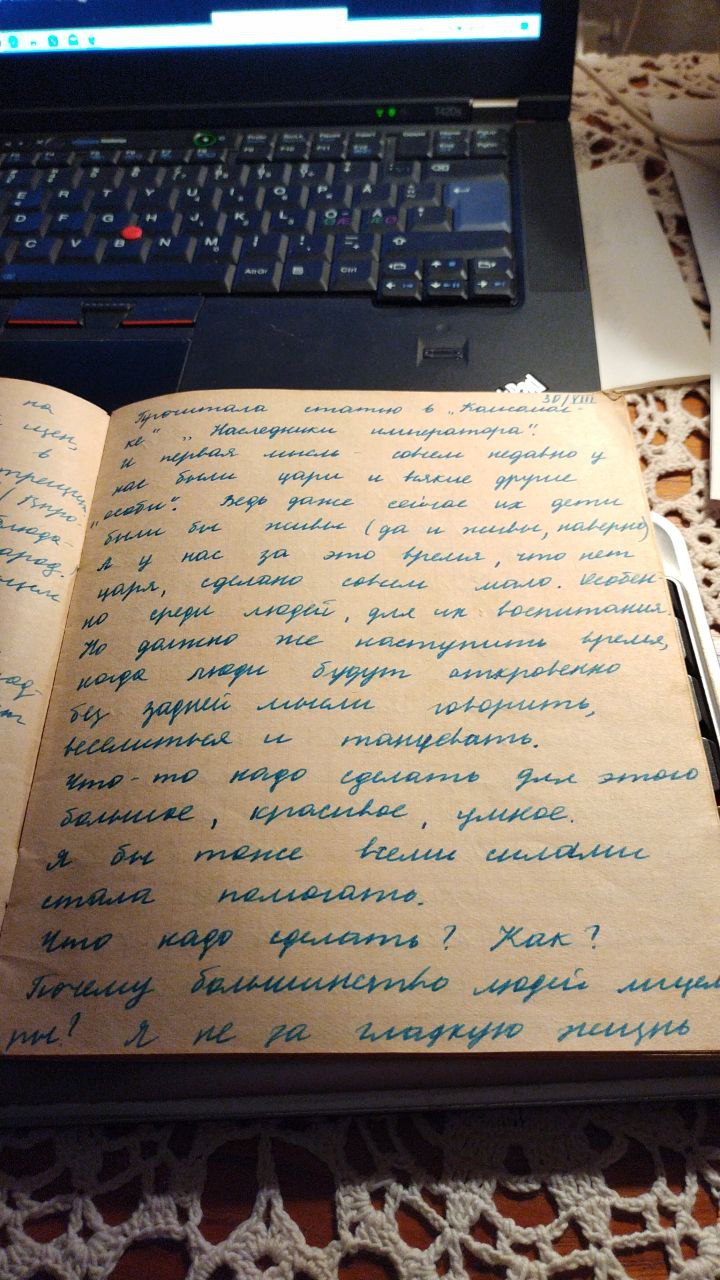 30/VIII
Прочитала статью в „Комсомол-
ке" „Наследники императора".
И первая мысль - совсем недавно у
нас были цари и всякие другие
„особи". Ведь даже сейчас их дети
были бы живы (да и живы, наверно)
А у нас за это время, что нет
царя, сделано совсем мало. Особен-
но среди людей, для их воспитания.
Но должно же наступить время,
когда люди будут откровенно
без задней мысли говорить,
веселиться и танцевать.
Что-то надо сделать для этого
большое, красивое, умное.
Я бы тоже всеми силами
стала помогать.
Что надо сделать? Как?
Почему большинство людей лицем
ры? Я не за гладкую жизнь